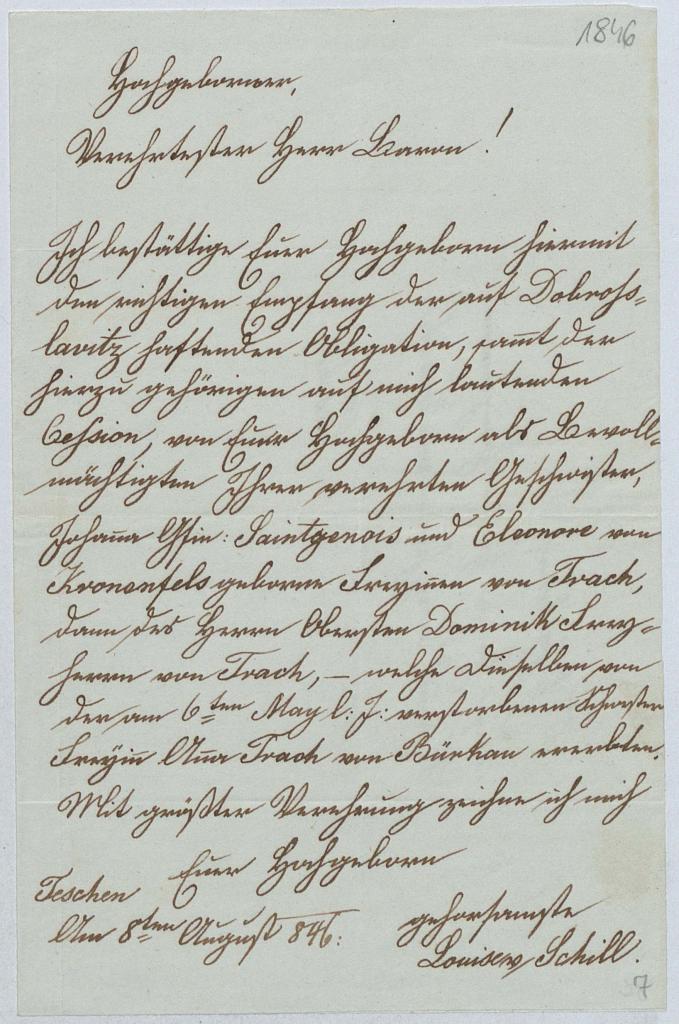 1846
Hochgeborner,
Verehrtester Herr Baron!
Ich bestättige Euer Hochgeborn hiermit
den richtigen Empfang der auf Dobrohs-
lavitz haftenden Obligation, sammt der
hierzu gehörigen auf mich lautenden
Cession, von Euer Hochgeborn als Bevoll-
mächtigten Ihrer verehrten Geschwister,
Johanna Gfin: Saintgenois und Eleonore von
Kronenfels geborne Freyinnen von Trach,
dann des Herrn Obersten Dominik Frey-
herrn von Trach, – welche Dieselben von
der am 6ten May l: J: verstorbenen Schwester
Freyin Anna Trach von Bürkau ererbten.
Mit größter Verehrung zeichne ich mich
Euer Hochgeborn
Teschen
Am 8ten August 846:
gehorsamste
Louise v Schill.
7